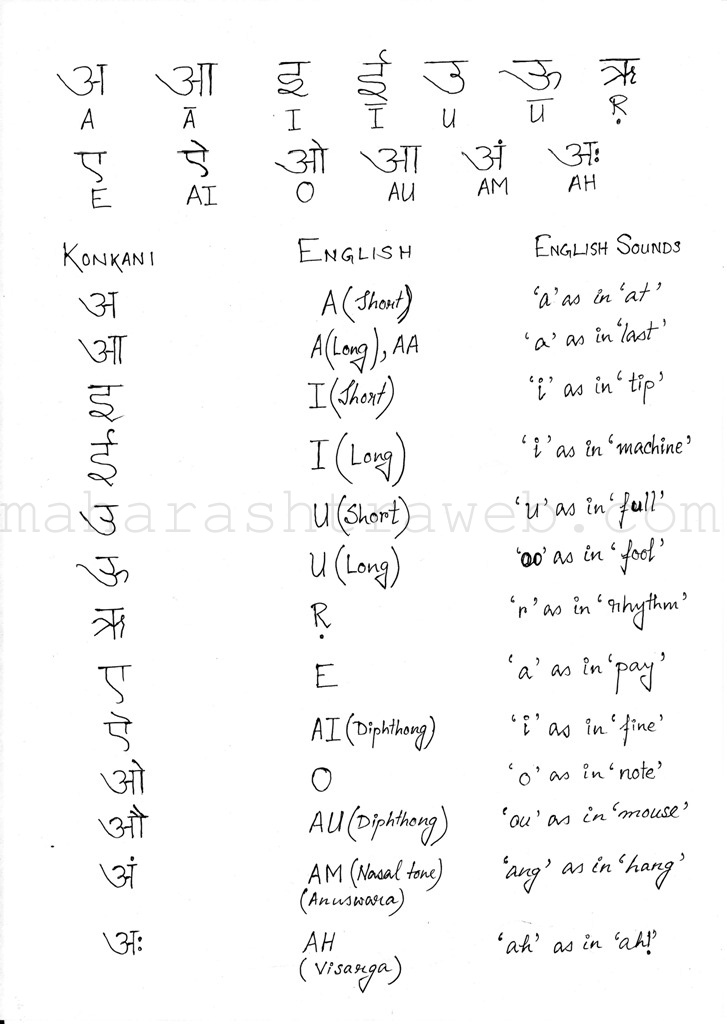 अ आ इ ई उ ऊ ऋ
A Ā I Ī U Ū Ṛ
ए ऐ ओ आ अं अः
E AI O AU AM AH
KONKANI ENGLISH ENGLISH SOUNDS
अ A (Short) 'a' as in 'at'
आ A (Long), AA 'a' as in 'last'
इ I (Short) 'i' as in 'tip'
ई I (Long) 'i' as in 'machine'
maharashtraweb.com
उ U (Short) 'u' as in 'full'
ऊ U (Long) 'oo' as in 'fool'
ऋ Ṛ 'r' as in 'rhythm'
ए E 'a' as in 'pay'
ऐ AI (Diphthong) 'i' as in 'fine'
ओ O 'o' as in 'note'
औ AU (Diphthong) 'ou' as in 'mouse'
अं AM (Nasal tone) 'ang' as in 'hang'
(Anuswara)
अः AH 'ah' as in 'ah!'
(Visarga)